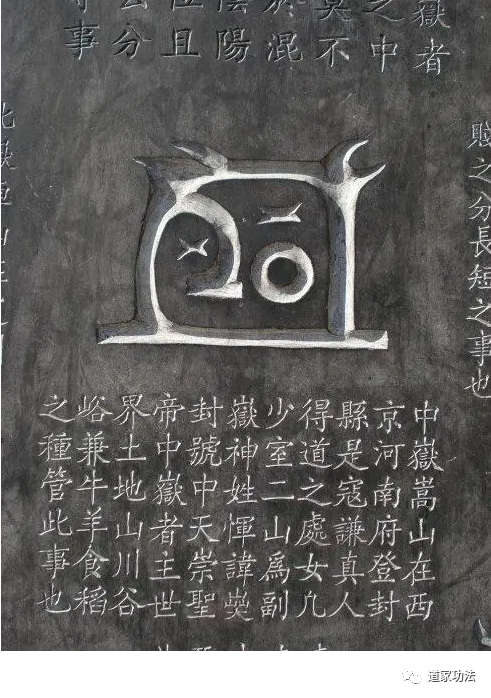 嶽者
之中
莫不
於混
陰陽
位且
公分
事
賤之分長短之事也
中嶽嵩山在西
京河南府登封
縣是寇謙真人
得道之處女几
少室二山爲副
嶽神姓惲諱
封號中天崇聖
帝中嶽者主世
界土地山川谷
峪兼牛羊食稻
之種管此事也
道家功法